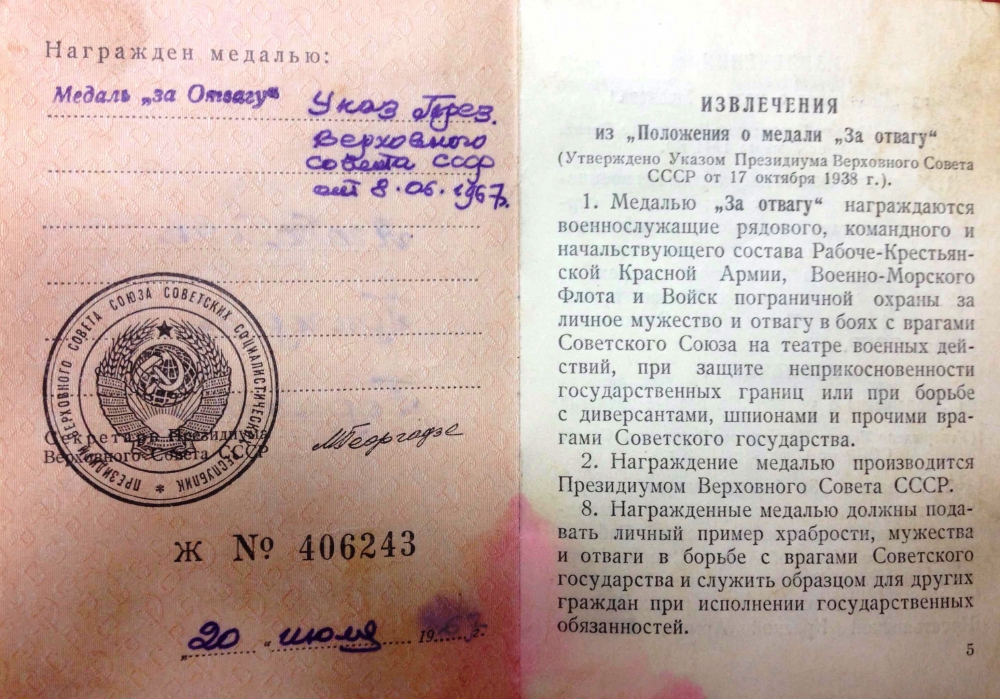 Награжден медалью:
Медаль „за Отвагу“
Указ През.
Верховного
совета ссср
от 8.06.1967г.
ПРЕЗИДИУМ ВЕРХОВНОГО СОВЕТА СОЮЗА СОВЕТСКИХ СОЦИАЛИСТИЧЕСКИХ РЕСПУБЛИК *
Секретарь Президиума
Верховного Совета СССР
МГеоргадзе
Ж № 406243
„20“ июля 1967 г.
ИЗВЛЕЧЕНИЯ
из „Положения о медали „За отвагу“
(Утверждено Указом Президиума Верховного Совета
СССР от 17 октября 1938 г.).
1. Медалью „За отвагу“ награждаются
военнослужащие рядового, командного и
начальствующего состава Рабоче-Крестьян-
ской Красной Армии, Военно-Морского
Флота и Войск пограничной охраны за
личное мужество и отвагу в боях с врагами
Советского Союза на театре военных дей-
ствий, при защите неприкосновенности
государственных границ или при борьбе
с диверсантами, шпионами и прочими вра-
гами Советского государства.
2. Награждение медалью производится
Президиумом Верховного Совета СССР.
8. Награжденные медалью должны пода-
вать личный пример храбрости, мужества
и отваги в борьбе с врагами Советского
государства и служить образцом для других
граждан при исполнении государственных
обязанностей.
5